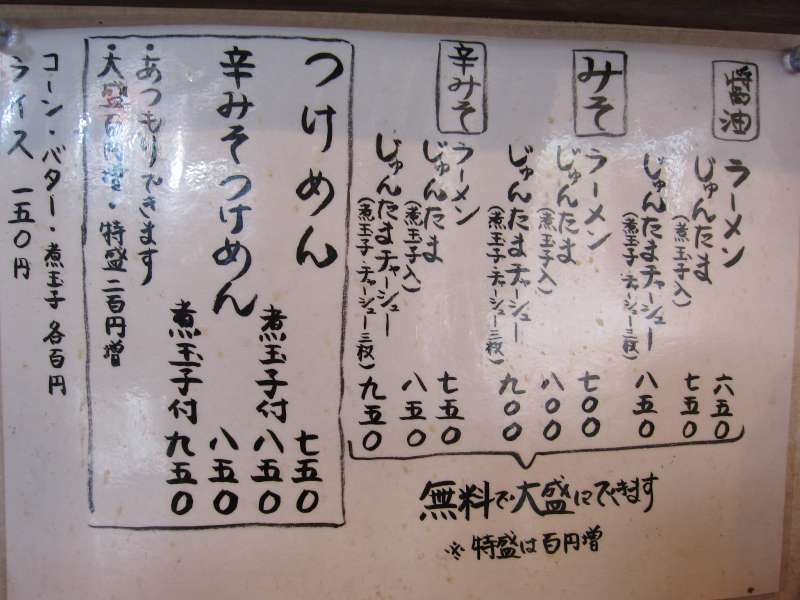 醤油
ラーメン 六五〇
じゅんたま(煮玉子入) 七五〇
じゅんたまチャーシュー(煮玉子・チャーシュー三枚) 八五〇
みそ
ラーメン 七〇〇
じゅんたま(煮玉子入) 八〇〇
じゅんたまチャーシュー(煮玉子・チャーシュー三枚) 九〇〇
辛みそ
ラーメン 七五〇
じゅんたま(煮玉子入) 八五〇
じゅんたまチャーシュー(煮玉子・チャーシュー三枚) 九五〇
無料で大盛にできます
※特盛は百円増
つけめん 七五〇
煮玉子付 八五〇
辛みそつけめん 八五〇
煮玉子付 九五〇
・あつもりできます
・大盛百円増・特盛二百円増
コーン・バター・煮玉子 各百円
ライス 一五〇円